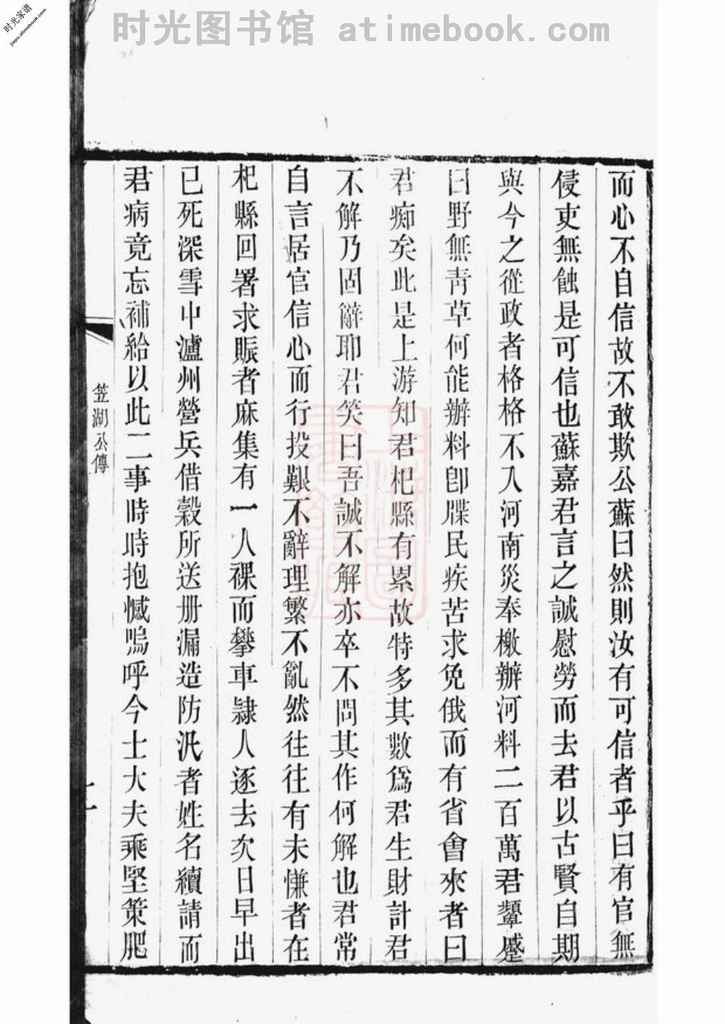 时光图书馆 atimebook.com
时光家谱
而心不自信故不敢欺公蘇曰然則汝有可信者乎曰有官無
侵吏無蝕是可信也蘇嘉君言之誠慰勞而去君以古賢自期
與今之從政者格格不入河南災奉檄辦河料二百萬君顰蹙
曰野無靑草何能辦料卽牒民疾苦求免俄而有省會來者曰
君痴矣此是上游知君杞縣有累故特多其數爲君生財計君
不解乃固辭耶君笑曰吾誠不解亦卒不問其作何解也君常
自言居官信心而行投艱不辭理繁不亂然往往有未慊者在
杞縣回署求賑者麻集有一人裸而攀車隷人逐去次日早出
已死深雪中瀘州營兵借穀所送册漏造防汛者姓名續請而
君病竟忘補給以此二事時時抱憾嗚呼今士大夫乘堅策肥
笠湖公傳